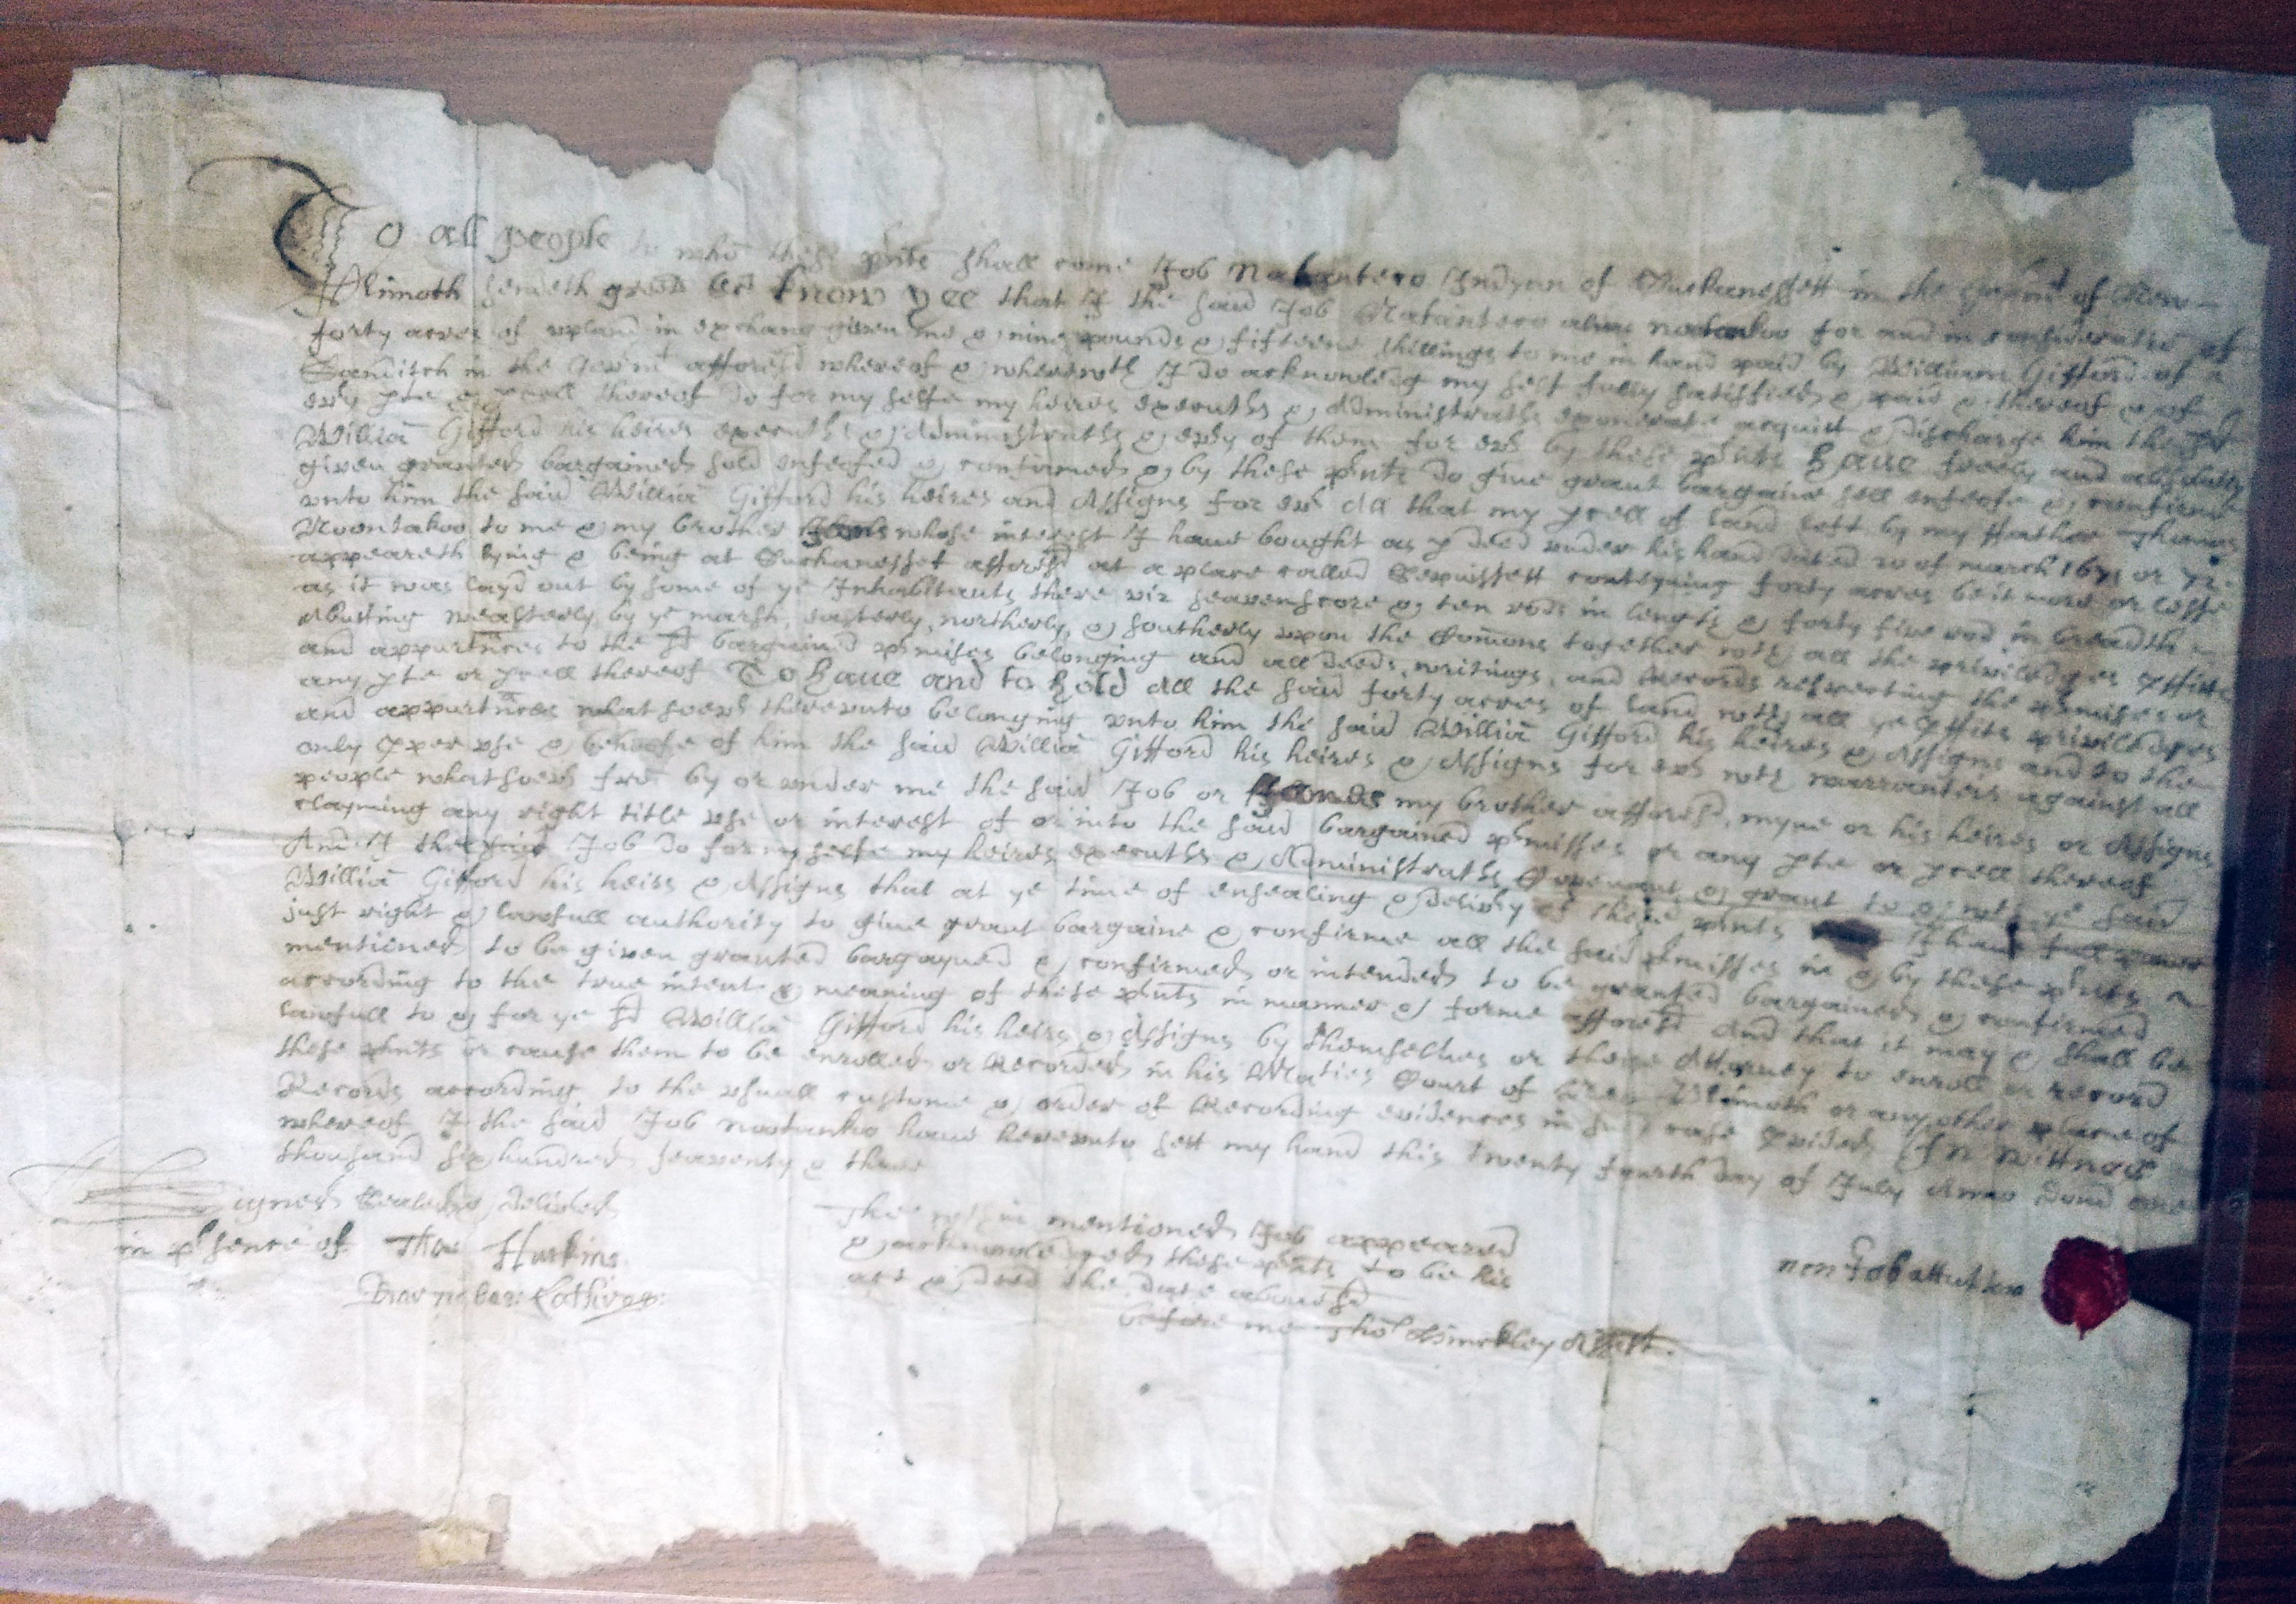 To all people to who these pnts shall come Job Indyan of Suckanessett in the of New
Plimoth sendeth greet &c Know yee that I the said Job alias for and in consideratio of
forty acres of upland in exchang given me & nine pounds & fifteene shillings to me in hand paid by William Gifford of
Sandwich in the afforesd whereof & wherewth I do acknowledg my self fully satisfied & paid & thereof & of
evy pte & pcell thereof do for my selfe my heires & Administratrs exonerate acquitt & discharge him the sd
Willia Gifford his heires & Administratrs & evy of them for evr by these pnts Haue freely and absolutly
given granted bargained sold enfeofed & confirmed & by these pnts do give grant bargaine sell enfeofe & confirme
unto him the said Willia Gifford his heires and Assigns for evr all that my pcell of land left by my ffather Thomas
to me & my brother whose interest I haue bought as p deed under his hand dated 20 of march 167 or 72
appeareth lying & being at Suckanesset afforesd at a place called conteyning forty acres be it more or lesse
as it was layd out by some of ye Inhabitants there viz seavenscore & ten rods in length & forty five rod in breadth
Abutting weasterly by ye marsh, easterly, northerly, & southerly upon the Comons together wth all the priviledges pffitts
and appurtnces to the sd bargained pmises belonging and all deeds, writings, and Records respecting the pmises or
any pte or pcell thereof To Haue and to Hold all the said forty acres of land wth all ye pffits priviledges
and appurtnces whatsoevr thereunto belonging unto him the said Willia Gifford his heires & Assigns and to the
only pper use & behoofe of him the said Willia Gifford his heires & Assigns for evr wth warranties against all
people whatsoevr fro by or under me the said Job or my brother afforesd, myne or his heires or Assigns
clayming any right title use or interest of or into the said bargained pmisses or any pte or pcell thereof
And I the said Job do for my selfe my heires & Administratrs Covenant & grant to & wth ye said
Willia Gifford his heirs & Assigns that at ye time of ensealing & delivry of these pnts I haue full power
just right & lawfull authority to give grant bargaine & confirme all the said pmisses in & by these pnts
mentioned to be given granted bargayned & confirmed or intended to be granted bargained & confirmed
according to the true intent & meaning of these pnts in manner & forme afforesd And that it may & shall be
lawfull to & for ye sd Willia Gifford his heirs & Assigns by themselves or theire Attorney to enroll or record
these pnts or cause them to be enrolled or Recorded in his Maties Court of New Plimoth or any other place of
Records according to the usuall custome & order of Recording evidences in such case pvided In wittnes
whereof I the said Job haue hereunto sett my hand this twenty fourth day of July Anno Domi one
thousand six hundred seaventy & three
Signed Sealed & Delivred
in psence of Tho Huckins
Barnabas Lothrop
The within mentioned Job appeared
& acknowledged these pnts to be his
act & deed the date abouesd
before me Tho Hinckley Assist.